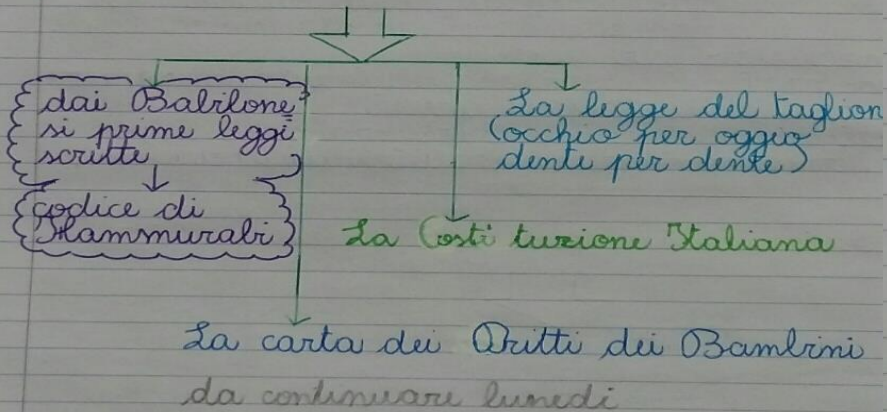 dai Babilone
si prime leggi
scritte
codice di
Hammurabi
La legge del taglion
(occhio per oggio
dente per dente)
La Costi tuzione Italiana
La carta dei Dritti dei Bambini
da continuare lunedi